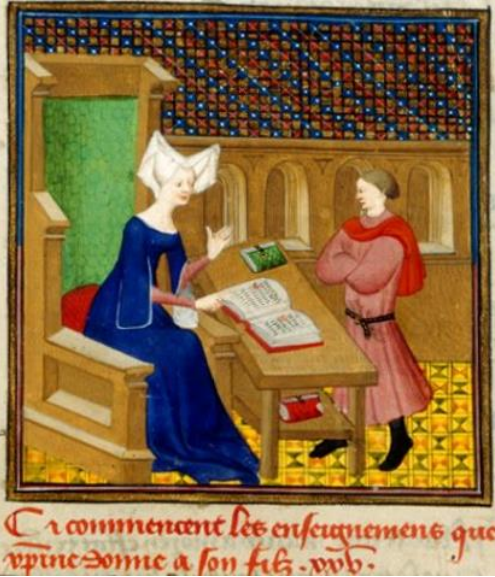 Ci commencent les enseignemens que
xpine donne a son filz . xxv .